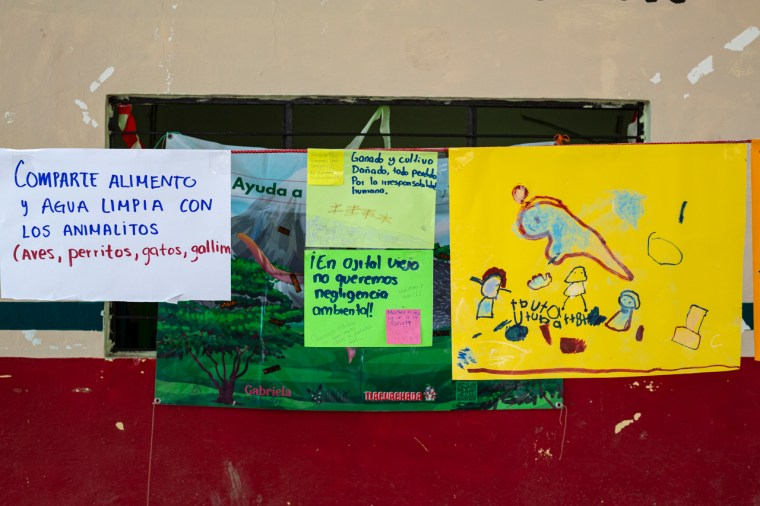 COMPARTE ALIMENTO
Y AGUA LIMPIA CON
LOS ANIMALITOS
(AVES, PERRITOS, GATOS, GALLIN
Ayuda a
Ganado y cultivo
Dañado, todo perdido
Por la irresponsabilidad
humana.
¡En Ojital Viejo
no queremos
negligencia
ambiental!!
Gabriela
TLACUACHADA